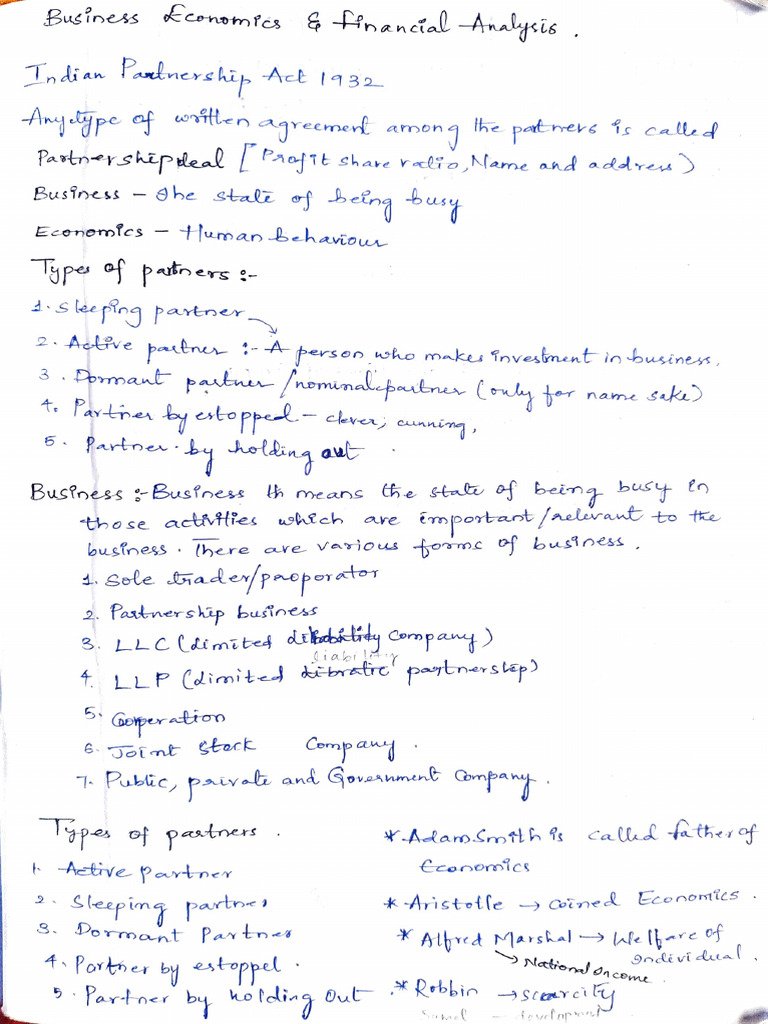 Business Economics & Financial Analysis.
Indian Partnership Act 1932
Any type of written agreement among the partners is called
Partnership deal [Profit share ratio, Name and address)
Business - The state of being busy
Economics - Human behaviour
Types of partners :-
1. Sleeping partner
2. Active partner :- A person who makes investment in business,
3. Dormant partner/nominal partner (only for name sake)
4. Partner by estopped - clever, cunning,
5. Partner by holding out
Business :- Business means the state of being busy in
those activities which are important/relevant to the
business. There are various forms of business.
1. Sole trader/paoporator
2. Partnership business
3. LLC (Limited Company)
liability
4. LLP (Limited libratic partnership)
5. Cooperation
6. Joint Stock Company.
7. Public, private and Government Company.
Types of partners.
1. Active partner
2. Sleeping partner
3. Dormant Partner
4. Partner by estoppel.
5. Partner by holding out
* Adam Smith is called father of
Economics
* Aristotle → coined Economics.
* Alfred Marshal → Welfare of
individual.
→ National Income.
* Robbin → scarcity